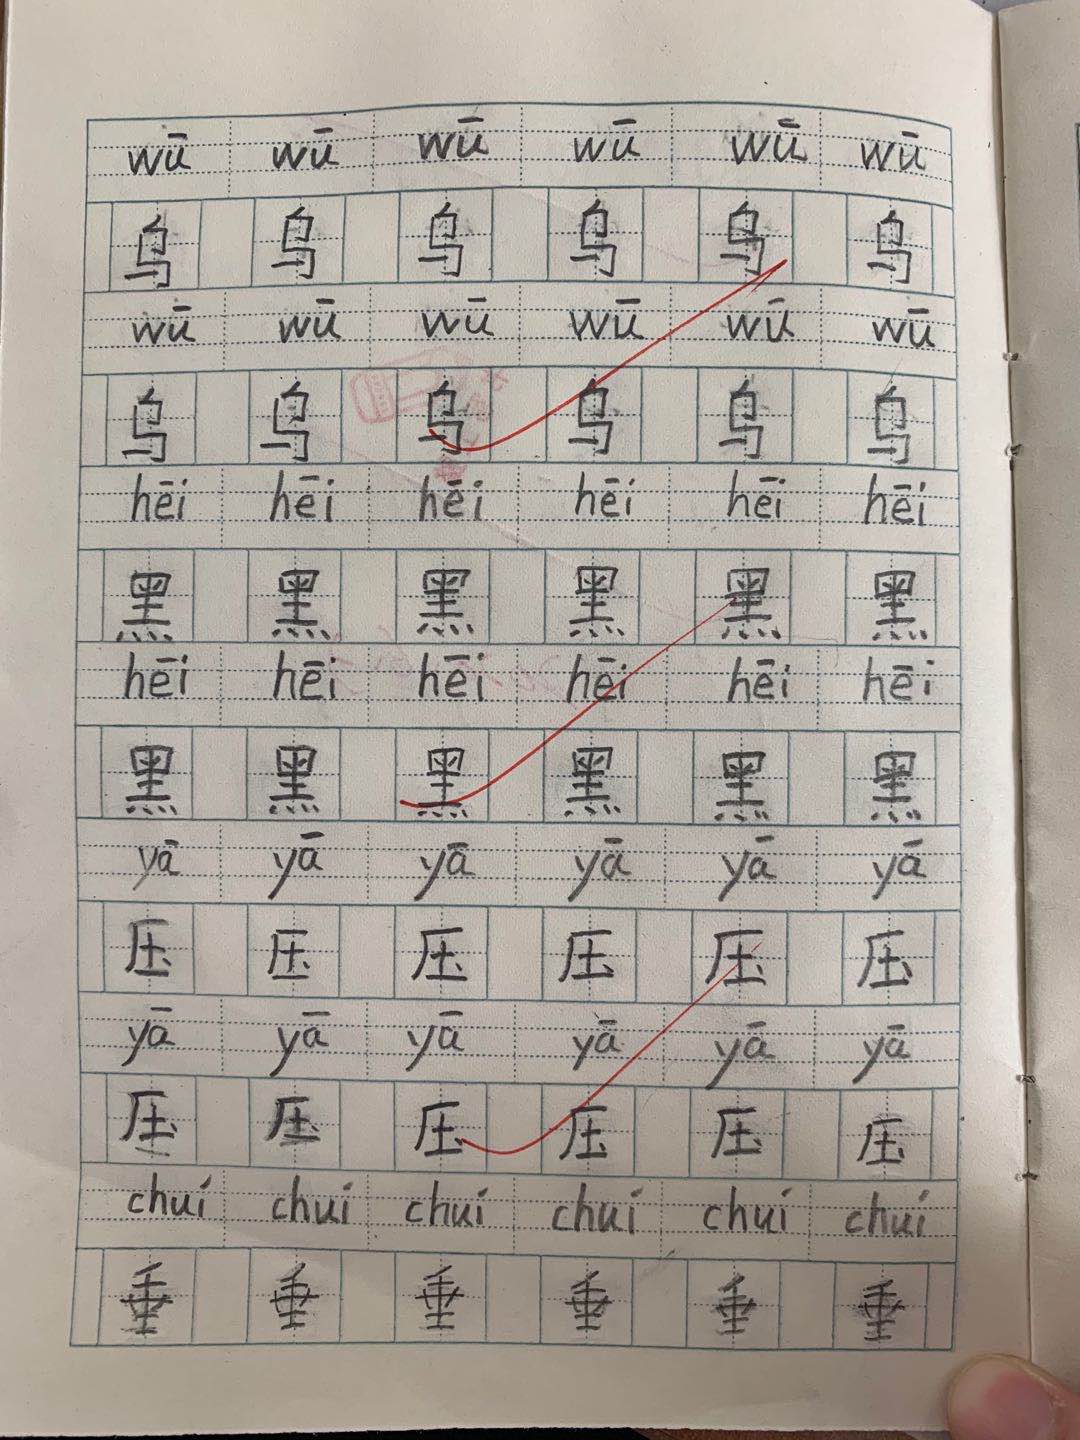 wū wū wū wū wū wū
乌 乌 乌 乌 乌 乌
wū wū wū wū wū wū
乌 乌 乌 乌 乌 乌
hēi hēi hēi hēi hēi hēi
黑 黑 黑 黑 黑 黑
hēi hēi hēi hēi hēi hēi
黑 黑 黑 黑 黑 黑
yā yā yā yā yā yā
压 压 压 压 压 压
yā yā yā yā yā yā
压 压 压 压 压 压
chuí chuí chuí chuí chuí chuí
垂 垂 垂 垂 垂 垂